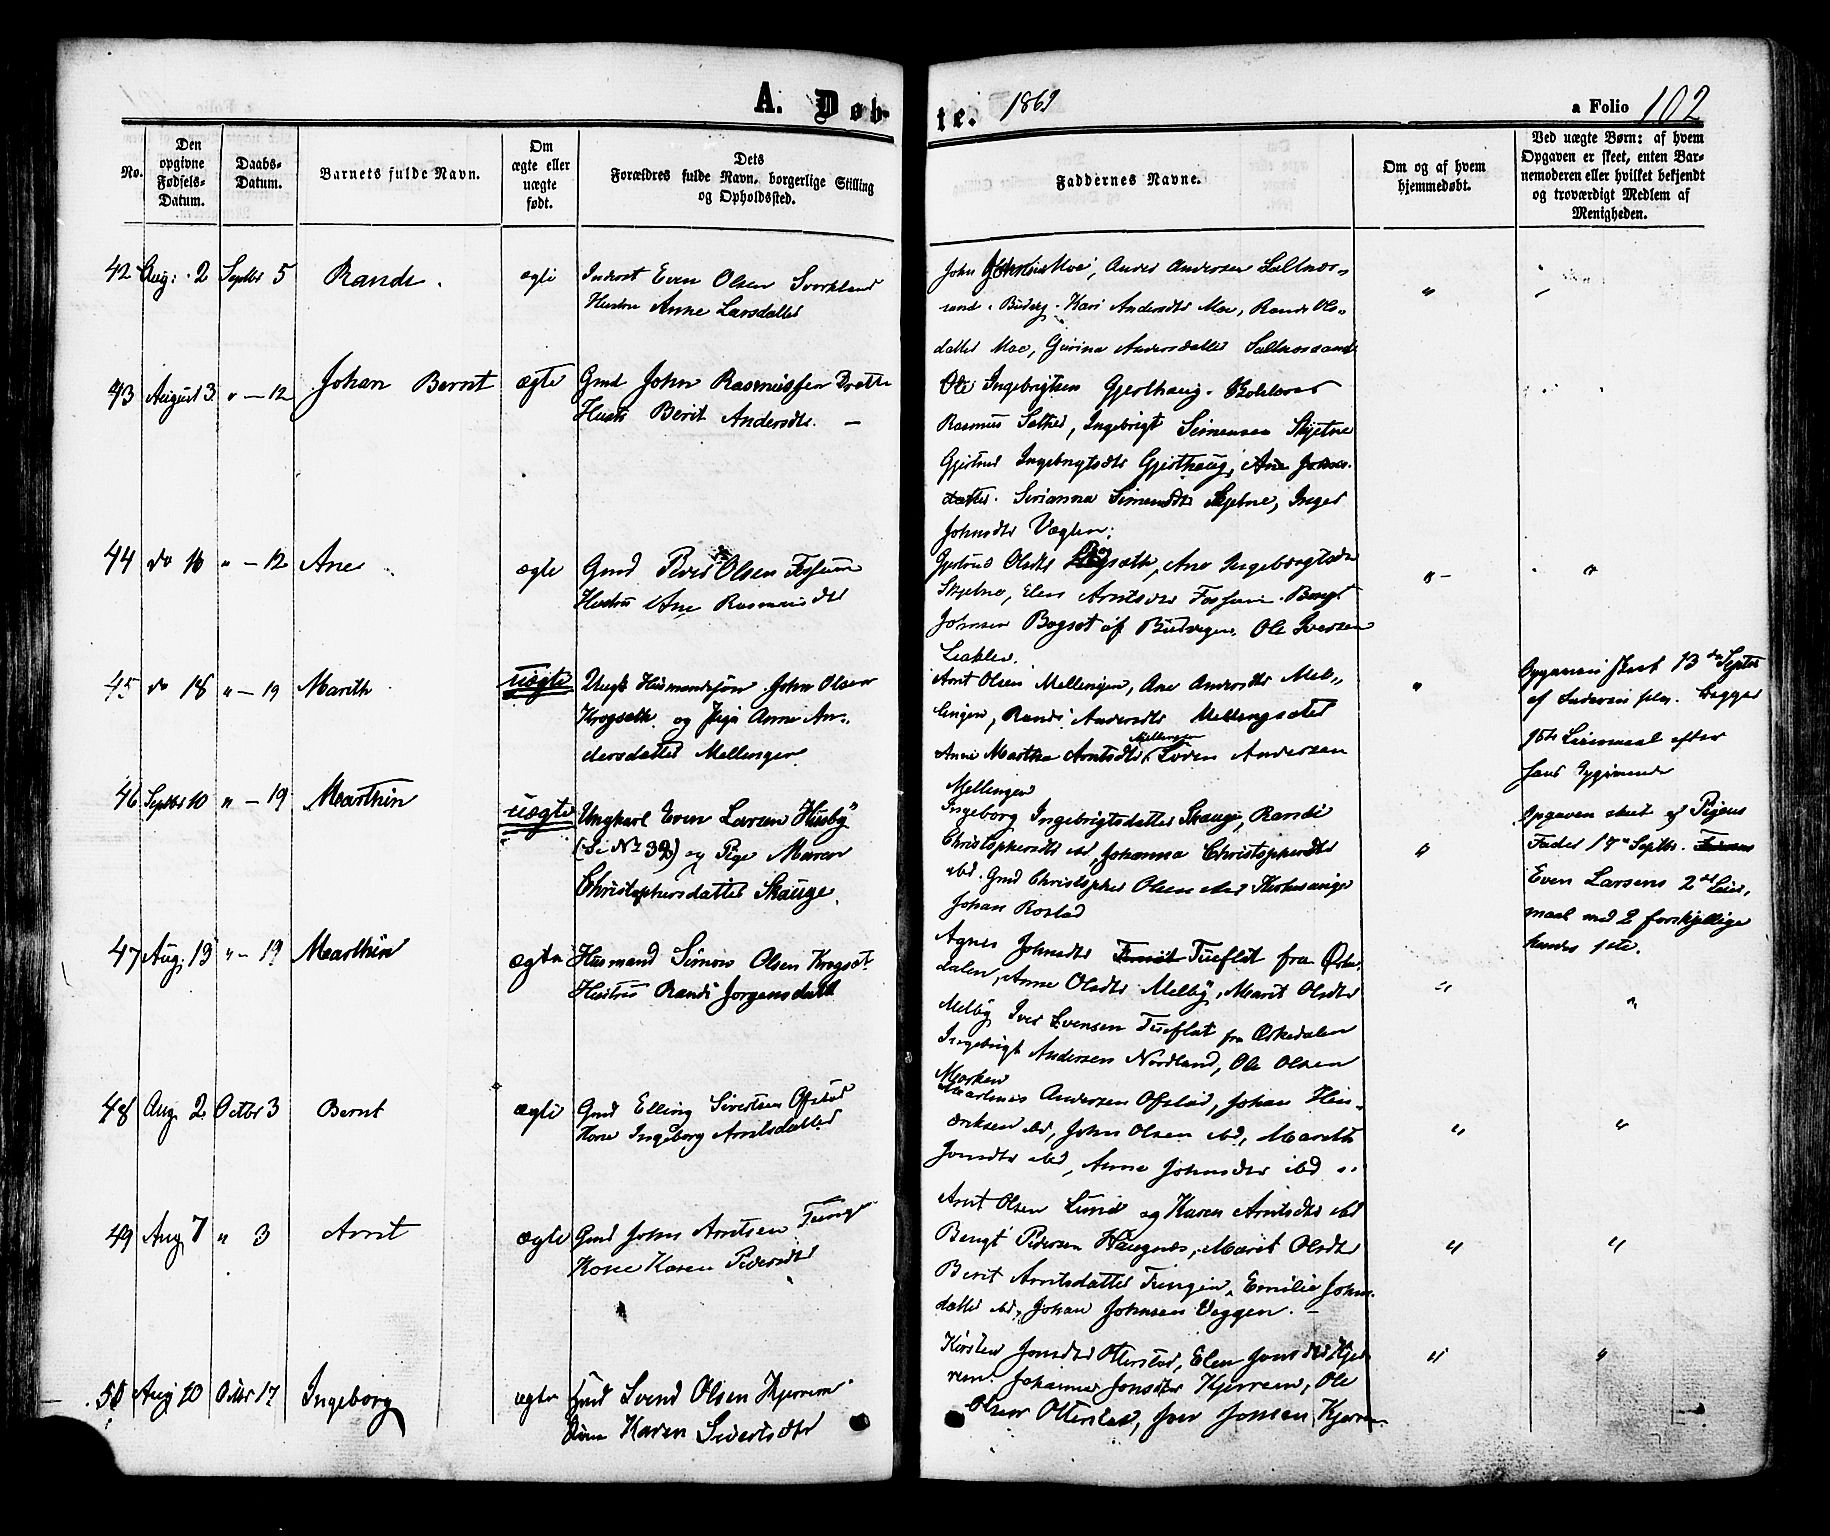 A. Døb-
te. 1869
a Folio 102
No.
Den opgivne Fødsels-Datum.
Daabs-Datum.
Barnets fulde Navn.
Om ægte eller uægte født.
Dets Forældres fulde Navn, borgerlige Stilling og Opholdssted.
Faddernes Navne.
Om og af hvem hjemmedøbt.
Ved uægte Børn: af hvem Opgaven er skeet, enten Barnemoderen eller hvilket bekjendt og troværdigt Medlem af Menigheden.
42 Aug: 2 Septbr 5 Randi ægte Inderst Even Olsen Svorkland
Hustru Anne Larsdatter
John Moe, Anders Andersen Saltnes-
sand. Budvig. Kari Andersdtr Moe, Randi Ols-
datter Moe, Gurina Andersdatter Saltnessand
43 August 3 " - 12 Johan Bernt ægte Gmd John Rasmussen
Hustr Berit Andersdtr. -
Ole Ingebrigtsen Gjerthaug.
Rasmus Sæther, Ingebrigt Simonsen Skjetne
Gjertrud Ingebrigtsdtr Gjerthaug, Ane Johns-
datter. Serianna Simonsdtr Skjetne, Inger
Johnsdtr Vaglen.
44 do 16 " - 12 Ane ægte Gmd Peder Olsen Fossum
Hustru Ane Rasmusdtr
Gjertrud Olsdtr Krogsæth, Ane Ingebrigtsdtr
Skjetne, Elen Arntsdtr Fossum. Bengt
Johnsen Bogset af Budvigen. Ole Iversen
45 do 18 " - 19 Marith uægte Ungk Husmandssøn John Olsen
Krogsæth og Pige Anne An-
dersdatter Mellingen
Arnt Olsen Mellingen, Ane Andersdtr Mel-
lingen, Randi Andersdtr Mellingsæter
Anne Martha Arntsdtr Mellingen, Søren Andersen
Mellingen
" Opgaven skeet 13de Septbr
af Begges
1ste Leiermaal efter
hans Opgivende
46 Septbr 10 " - 19 Marthin uægte Ungkarl Even Larsen Husby
(Se No 39) og Pige Maren
Christophersdatter Skauge.
Ingeborg Ingebrigtsdatter Skauge, Randi
Christophersdtr ibd, Johanna Christophersdtr
ibd. Gmd Christopher Olsen
Johan Rostad
" Opgaven skeet af Pigens
Fader 17de Septbr.
Even Larsens 2det Leier-
maal med 2 forskjellige
hendes 1ste.
47 Aug. 13 " - 19 Marthin ægte Husmand Simon Olsen Krogset
Hustru Randi Jørgensdatter
Agnes Johnsdtr Tueflot fra Orke-
dalen, Anne Olsdtr Melby, Marit Olsdtr
Melby Iver Evensen Tueflat fra Orkedalen
Ingebrigt Andersen Nordland, Ole Olsen
Moshen
48 Aug. 2 Octbr 3 Bernt ægte Gmd Elling Sivertsen Ofstad
Kone Ingeborg Arntsdatter
Andersen Ofstad, Johan Hen-
driksen ibd, John Olsen ibd, Marith
Jonsdtr ibd, Anne Johnsdtr ibd
49 Aug 7 " 3 Arnt ægte Gmd John Arntsen Tungen
Kone Karen Pedersdtr
Arnt Olsen Lund og Karen Arntsdtr ibd
Bengt Pedersen Haugnes, Marit Olsdtr
Berit Arntsdatter Tungen, Emilie John-
datter ibd, Johan Johnsen Vaggen.
50 Aug 10 Octbr 17 Ingeborg ægte Gmd Svend Olsen Kjerrem
Kone Karen Sivertsdtr
Kirsten Jonsdtr Otterstad, Elen Jonsdtr Kjer-
rem. Johanna Jonsdtr Kjerrem, Ole
Olsen Otterstad, Iver Jonsen Kjerrem